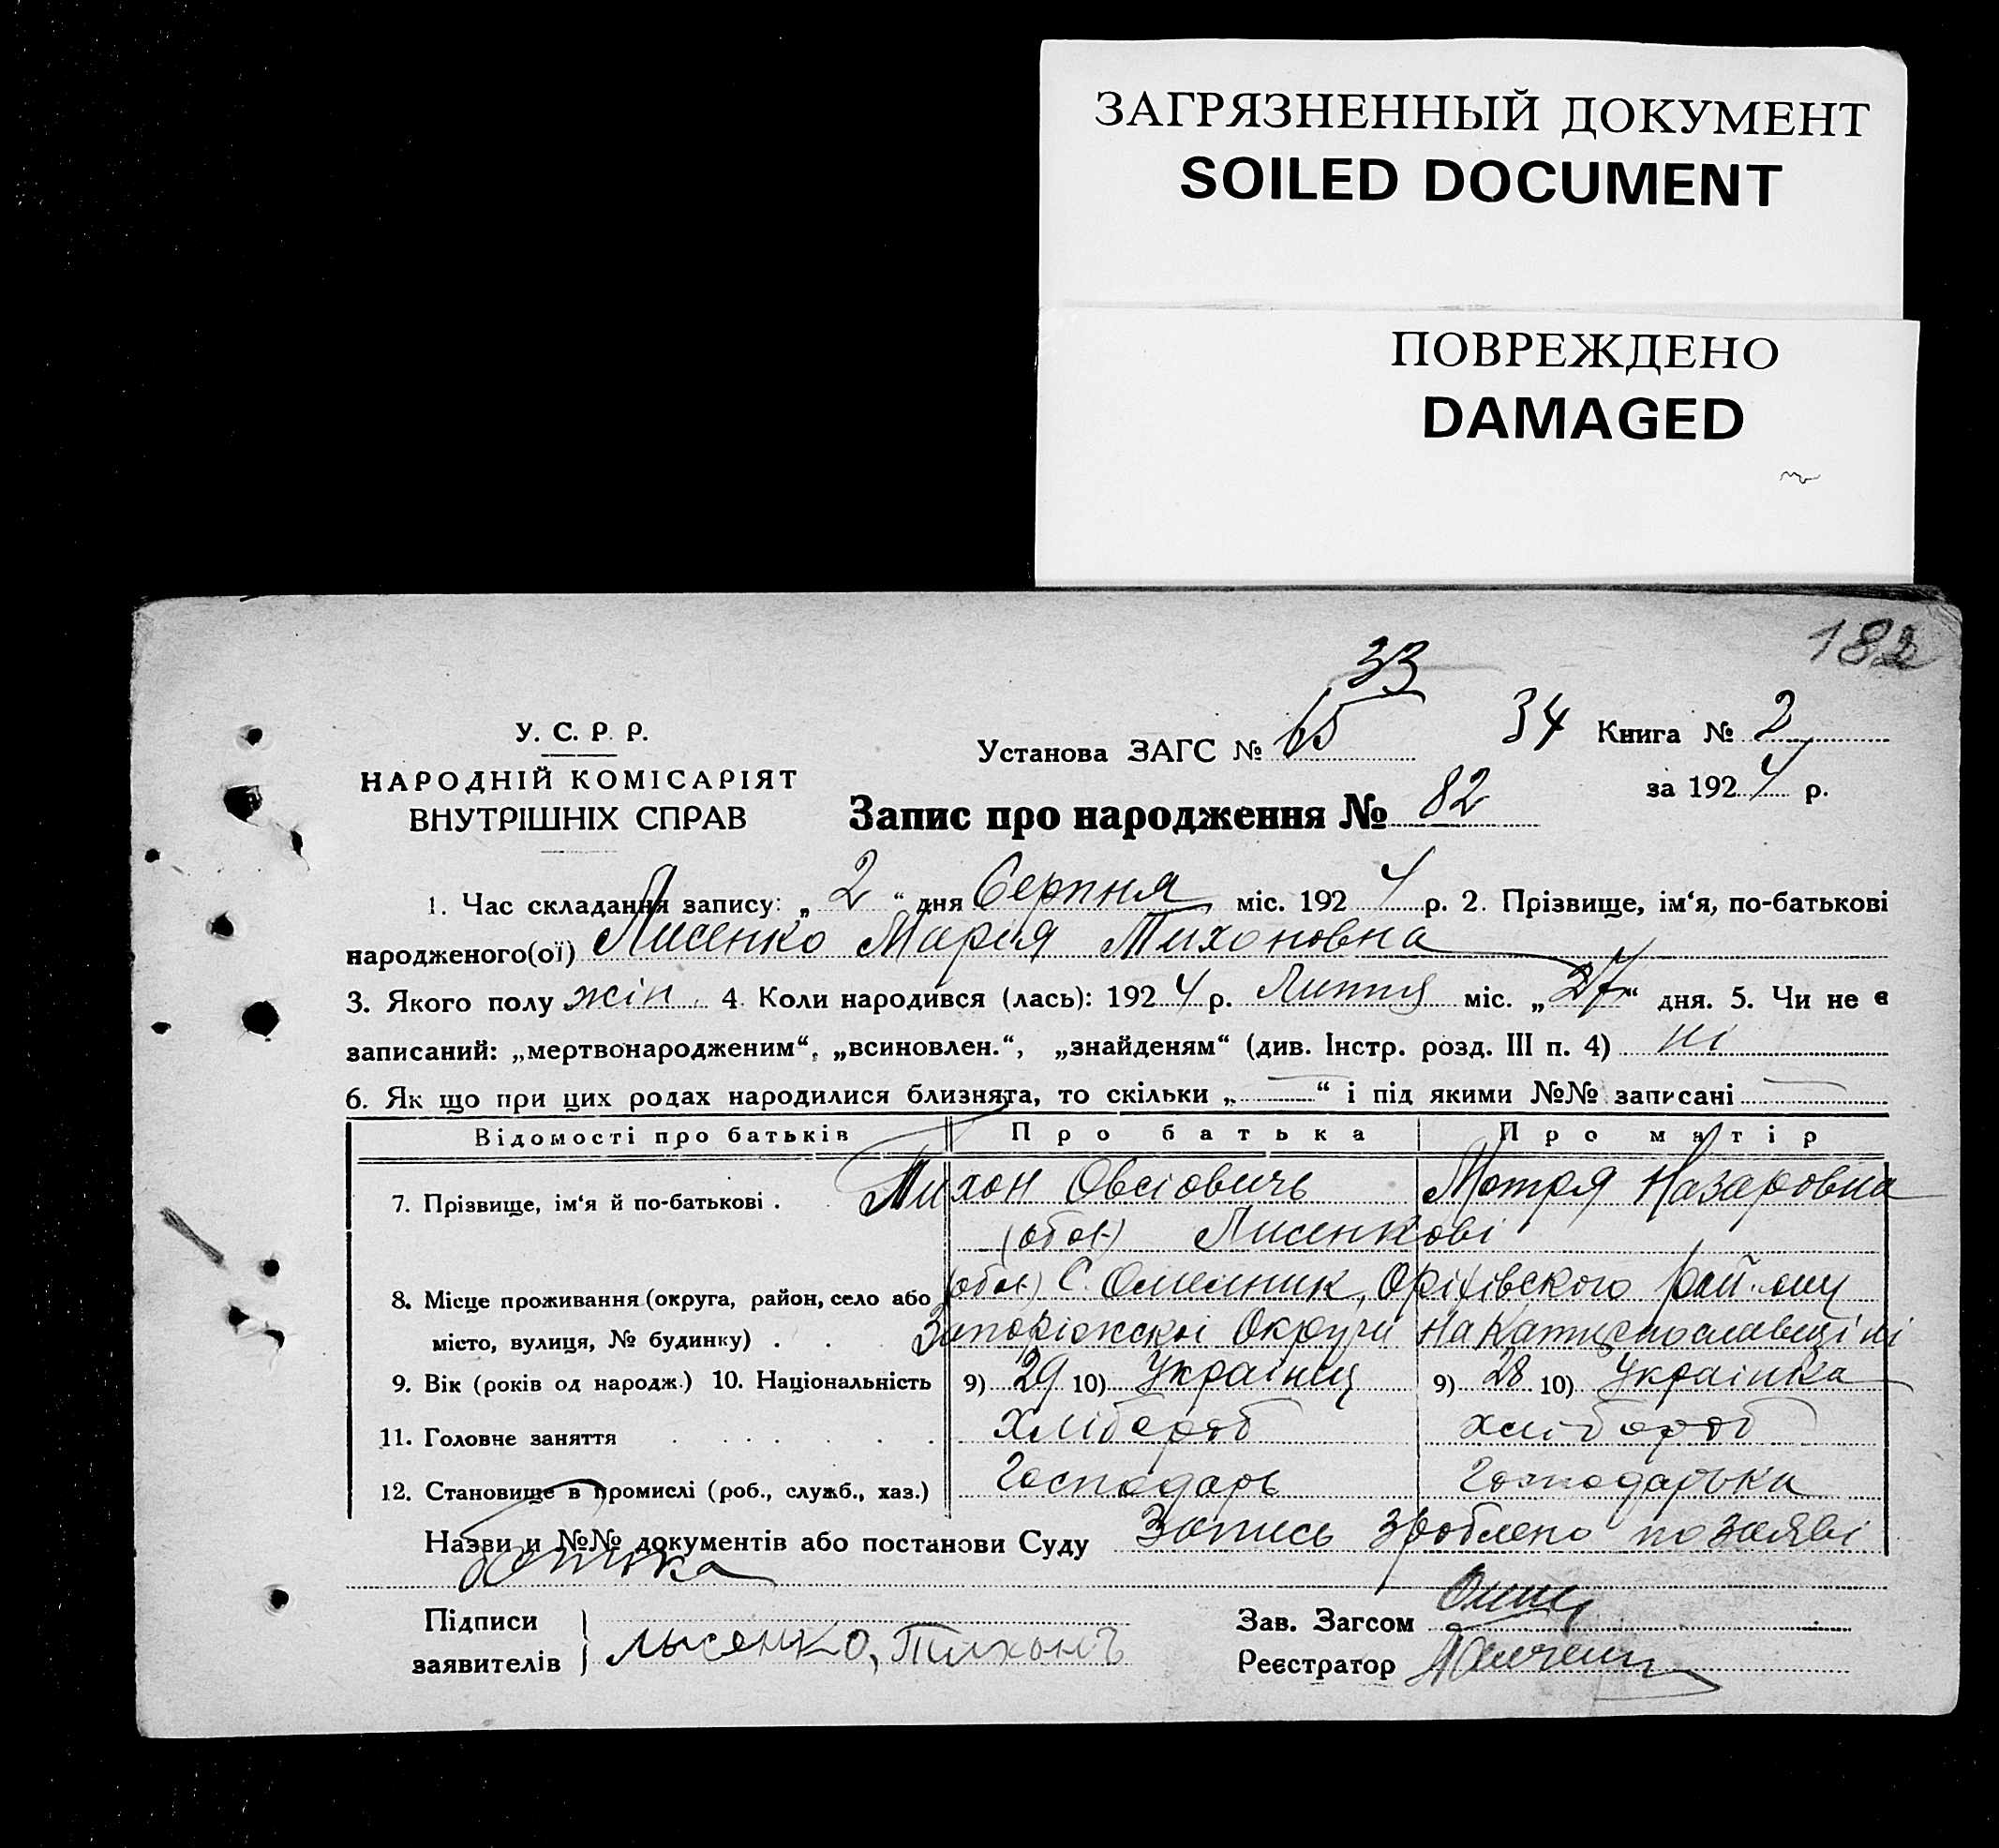 ЗАГРЯЗНЕННЫЙ ДОКУМЕНТ
SOILED DOCUMENT
ПОВРЕЖДЕНО
DAMAGED
182
33
У. С. Р. Р.
Установа ЗАГС № 65 34 Книга № 2
НАРОДНІЙ КОМІСАРІЯТ
ВНУТРІШНІХ СПРАВ
за 1924 р.
Запис про народження № 82
1. Час складання запису: „2“ дня Серпня міс. 1924 р. 2. Прізвище, ім‘я, по-батькові
народженого(ої) Лисенко Марія Тихоновна
3. Якого полу жін. 4. Коли народився (лась): 1924 р. Липня міс. „27“ дня. 5. Чи не є
записаний: „мертвонародженим“, „всиновлен.“, „знайденям“ (див. Інстр. розд. III п. 4) ні
6. Як що при цих родах народилися близнята, то скільки „—“ і під якими №№ записані —
Відомості про батьків Про батька Про матір
7. Прізвище, ім‘я й по-батькові . Тихон Овсіовичь Мотря Назаровна
(обоє) Лисенкові
8. Місце проживання (округа, район, село або (обоє) С. Омельник, Оріхівского району
місто, вулиця, № будинку) . . Запоріжскоі Округи на Катеринославщіні
9. Вік (років од народж.) 10. Національність 9) 29 10) Українец 9) 28 10) Українка
11. Головне заняття . . . . . . . хлібороб хлібороб
12. Становище в промислі (роб., служб., хаз.) Господарь Господарька
Назви и №№ документів або постанови Суду Запись зроблено по заяві
батька
Підписи
заявителів } Лысенко, Тихонъ
Зав. Загсом
Реєстратор